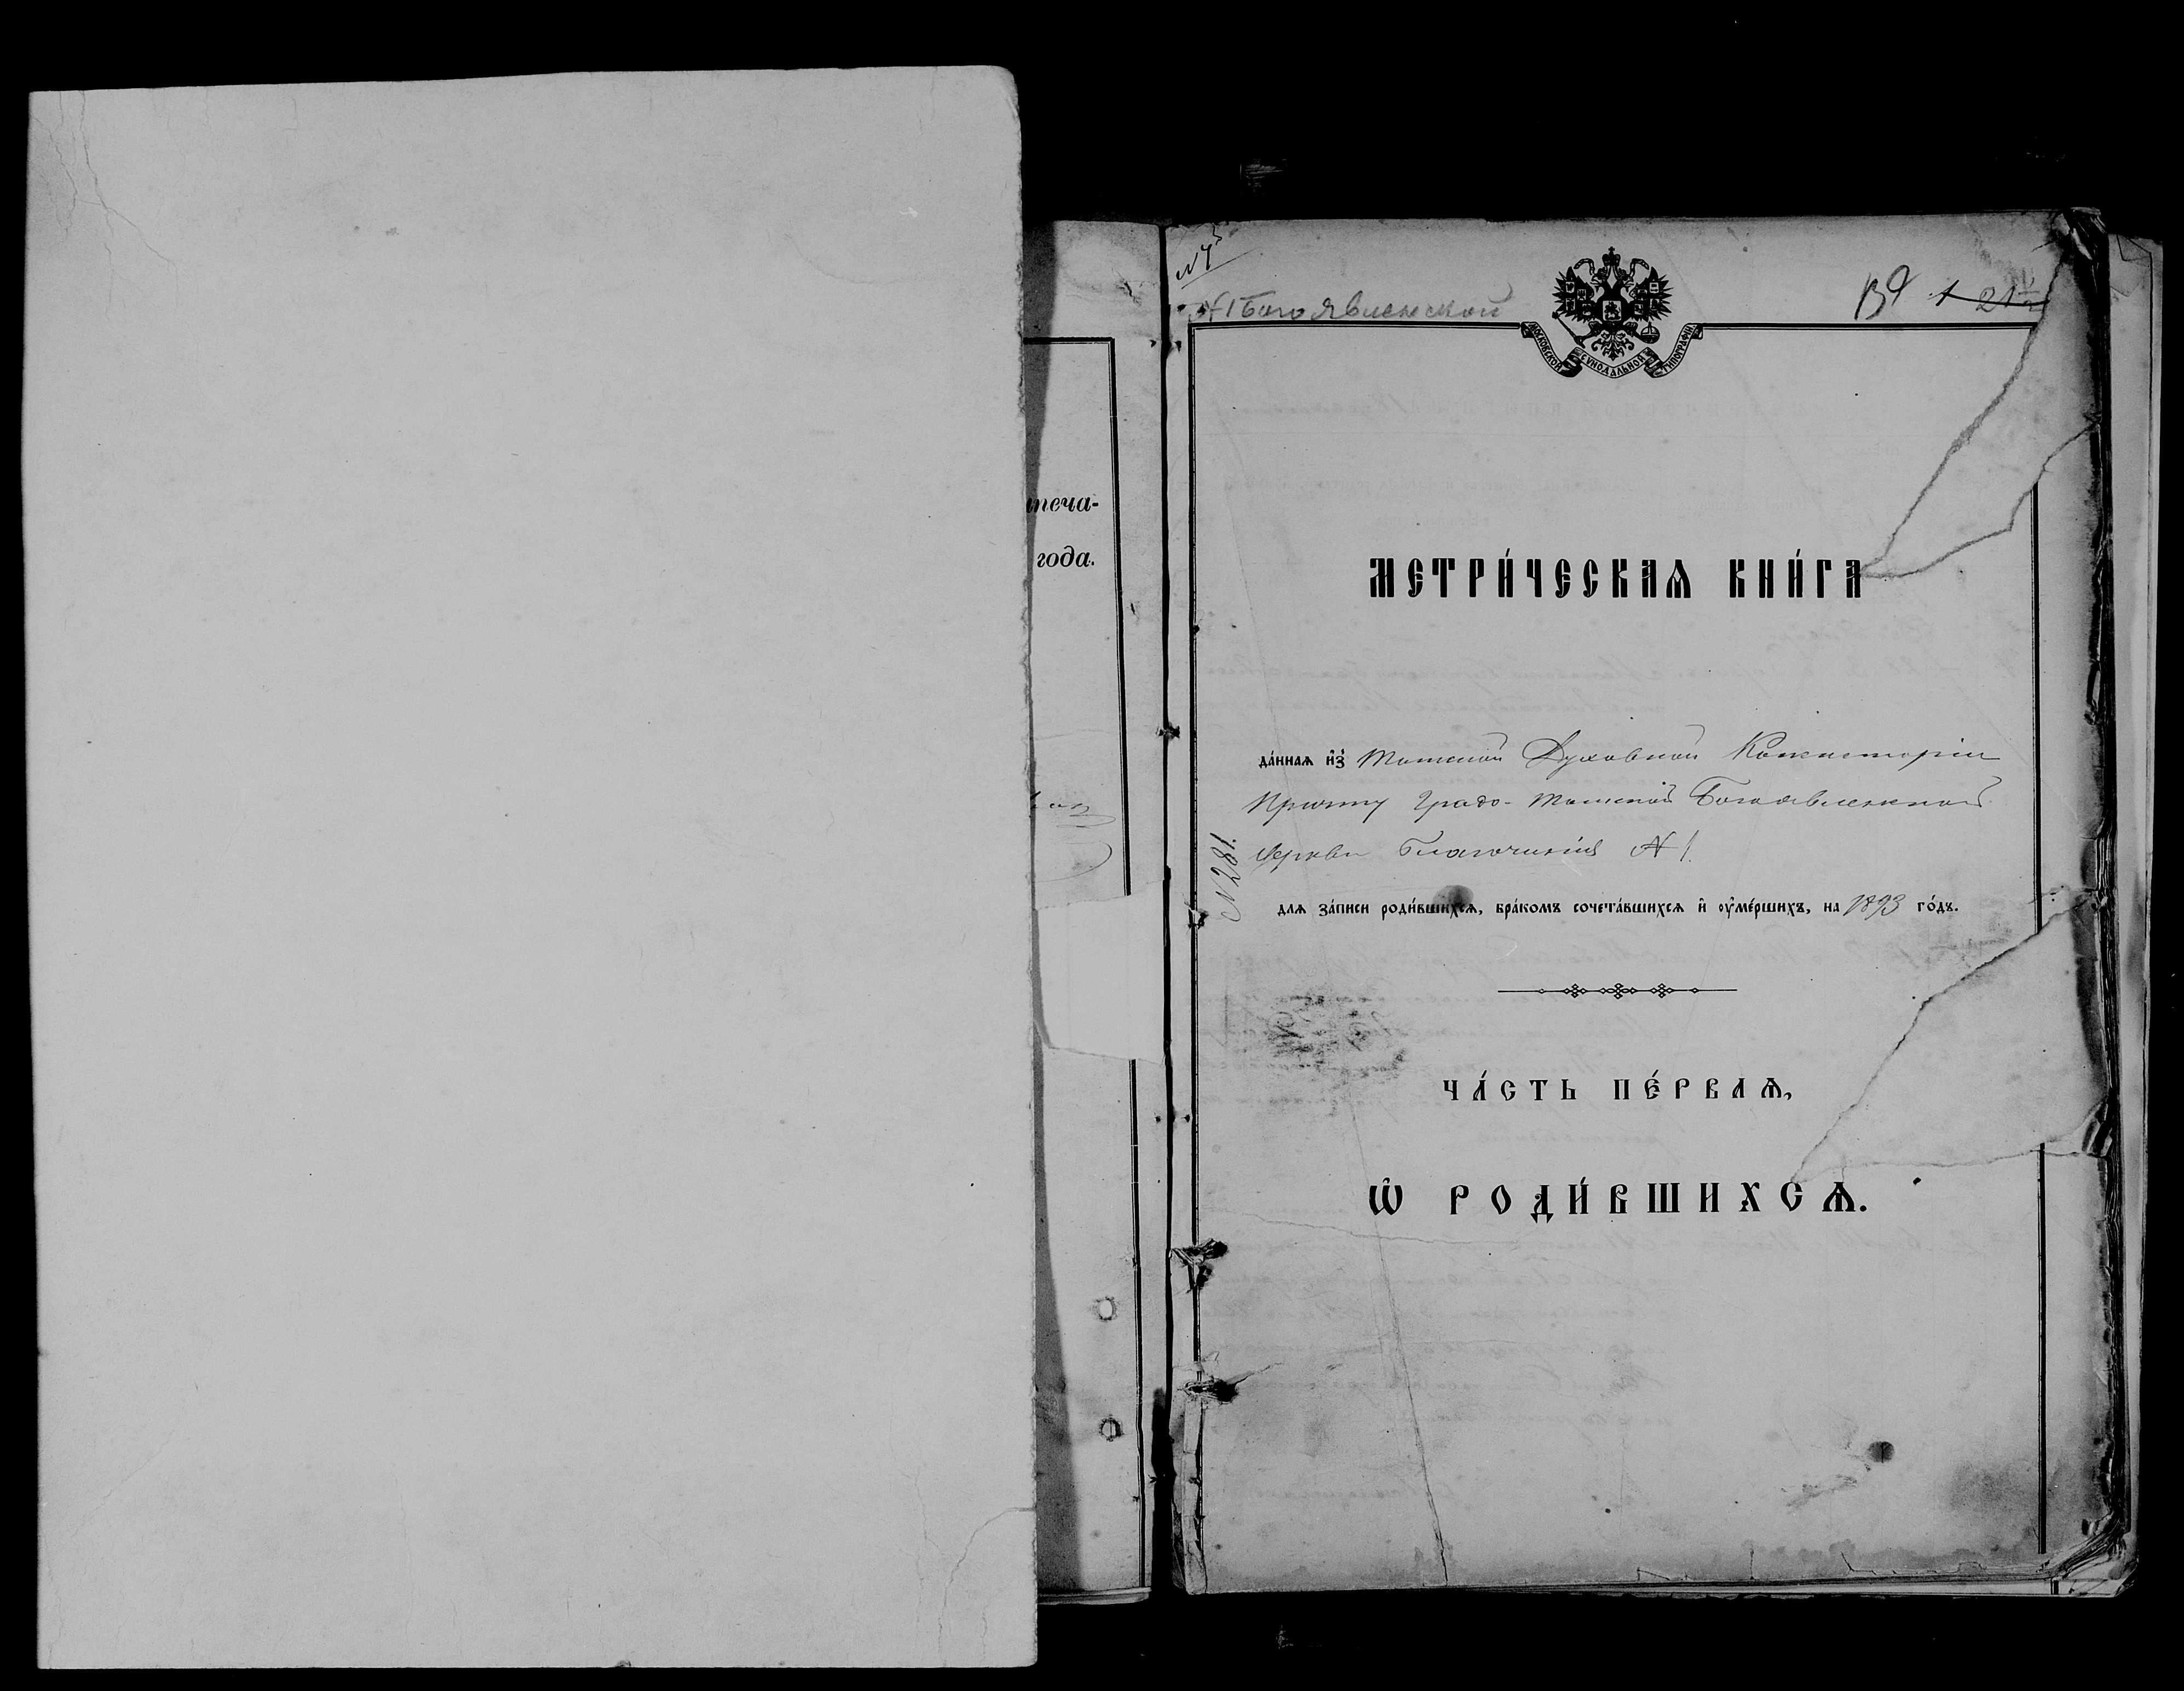 печа-
года.
№ 1 Богоявленской
МОСКОВСКОЙ СѴНОДАЛЬНОЙ ТИПОГРАФІИ
МЕТРИ́ЧЕСКАѦ КНИ́ГА
да́ннаѧ и҆з̾ Томской Духовной Консисторіи
Причту Градо-Томской Богоявленской
Церкви Благочинія № 1.
№ 281.
длѧ за́писи роди́вшихсѧ, бра́комъ сочета́вшихсѧ и҆ ᲂу҆ме́ршихъ, на 1893 го́дъ.
ЧА́СТЬ ПЕ́РВАѦ,
Ѡ҆ РОДИ́ВШИХСѦ.